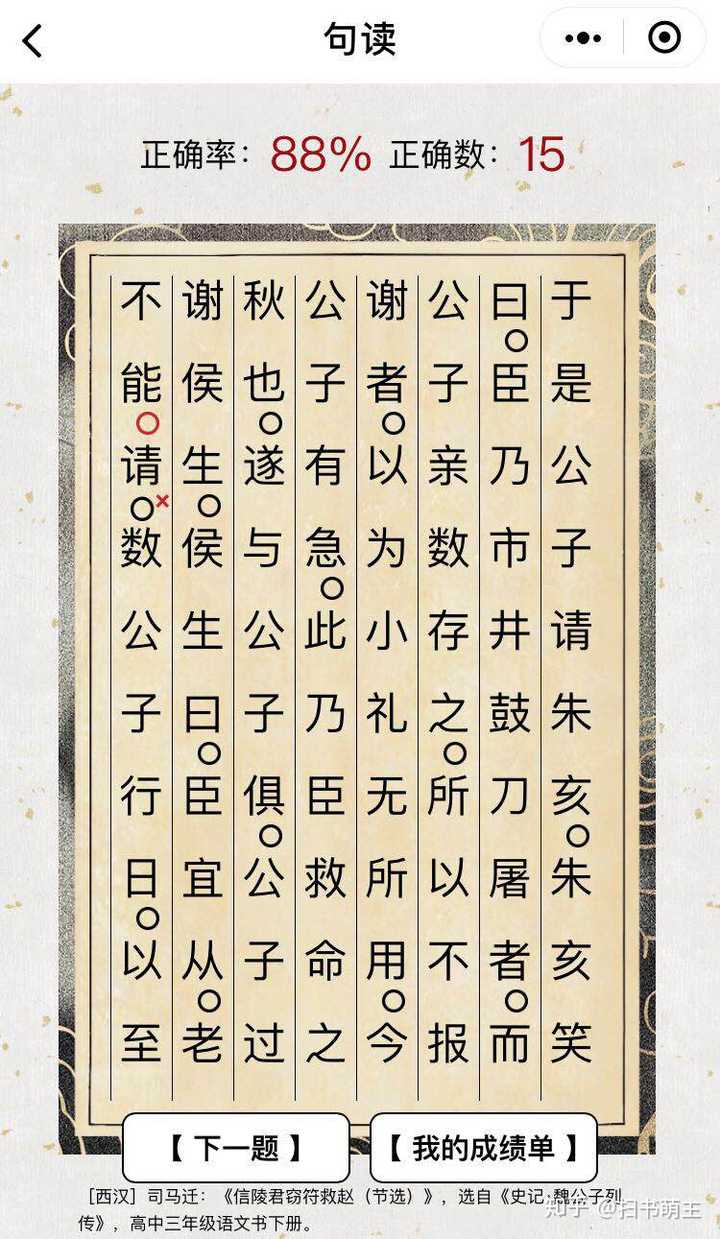 句读
正确率：88% 正确数：15
于是公子请朱亥。朱亥笑
曰。臣乃市井鼓刀屠者。而
公子亲数存之。所以不报
谢者。以为小礼无所用。今
公子有急。此乃臣救命之
秋也。遂与公子俱。公子过
谢侯生。侯生曰。臣宜从。老
不能。请。×数公子行日。以至
【 下一题 】 【 我的成绩单 】
［西汉］司马迁：《信陵君窃符救赵（节选）》，选自《史记·魏公子列
传》，高中三年级语文书下册。
知乎 @扫书萌主